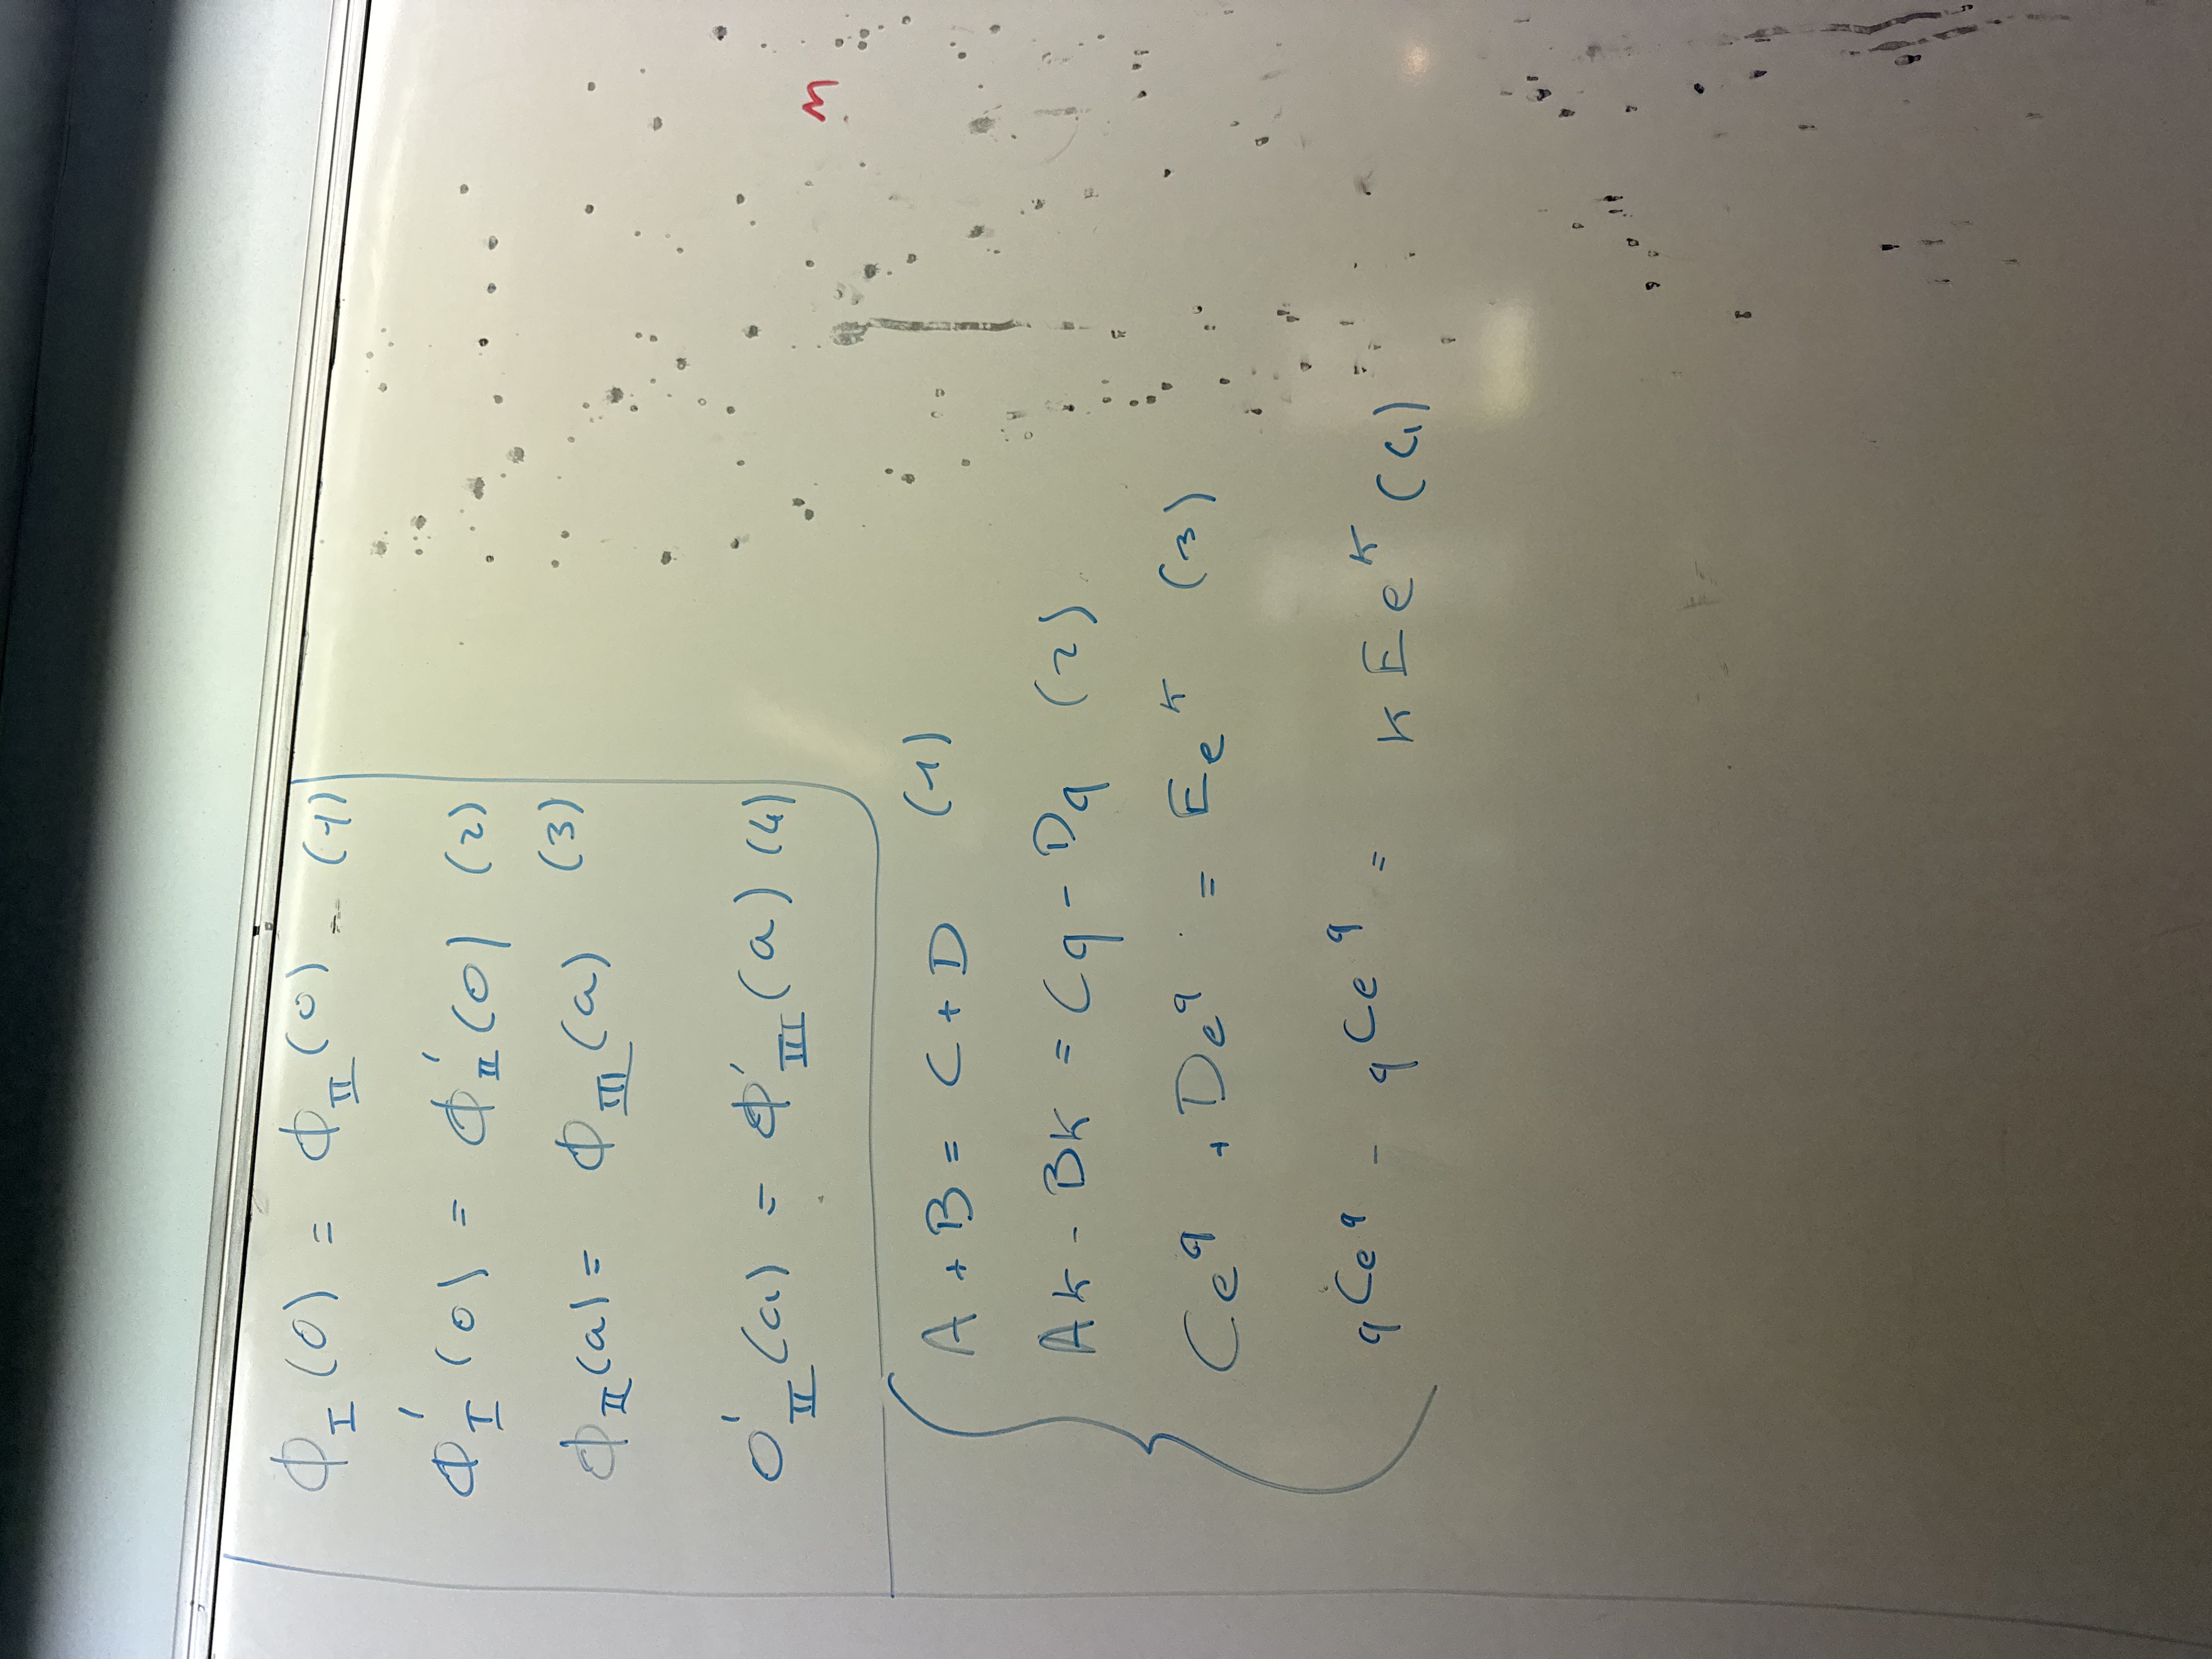 Φ_I (0) = Φ_II (0) (1)
Φ'_I (0) = Φ'_II (0) (2)
Φ_II (a) = Φ_III (a) (3)
O'_II (a) = Φ'_III (a) (4)
A + B = C + D (1)
Ak - Bk = Cq - Dq (2)
Ce^q + De^q = Ee^k (3)
qCe^q - qCe^q = kEe^k (4)
M